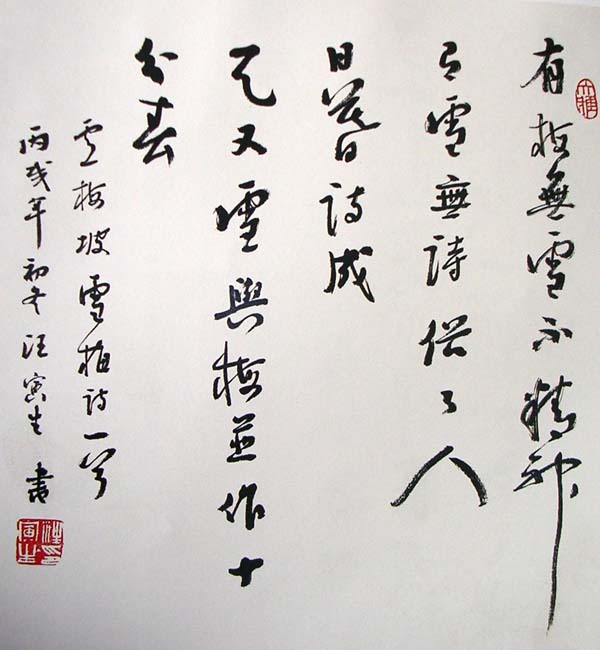 有梅無雪不精神
有雪無詩俗了人
日暮詩成
天又雪與梅並作十
分春
盧梅坡雪梅詩一首
丙戌年初冬汪寅生書
汪寅生印